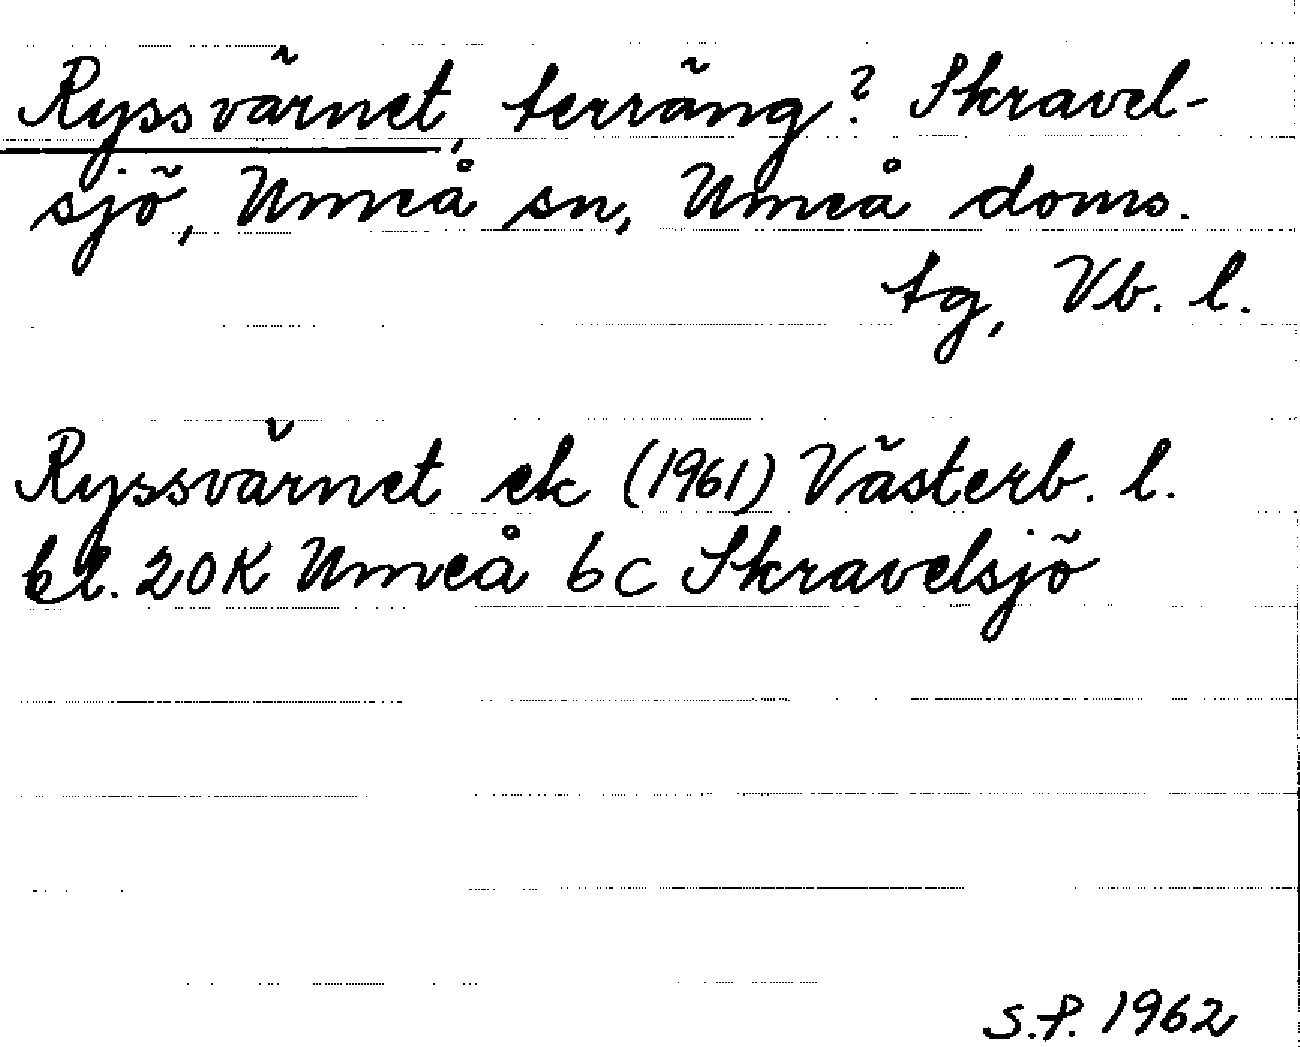 Ryssvärnet, terräng? Skravel-
sjö, Umeå sn, Umeå doms.
tg, Vb. l.
Ryssvärnet ek (1961) Västerb. l.
bl. 20K Umeå 6c Skravelsjö
S.P. 1962